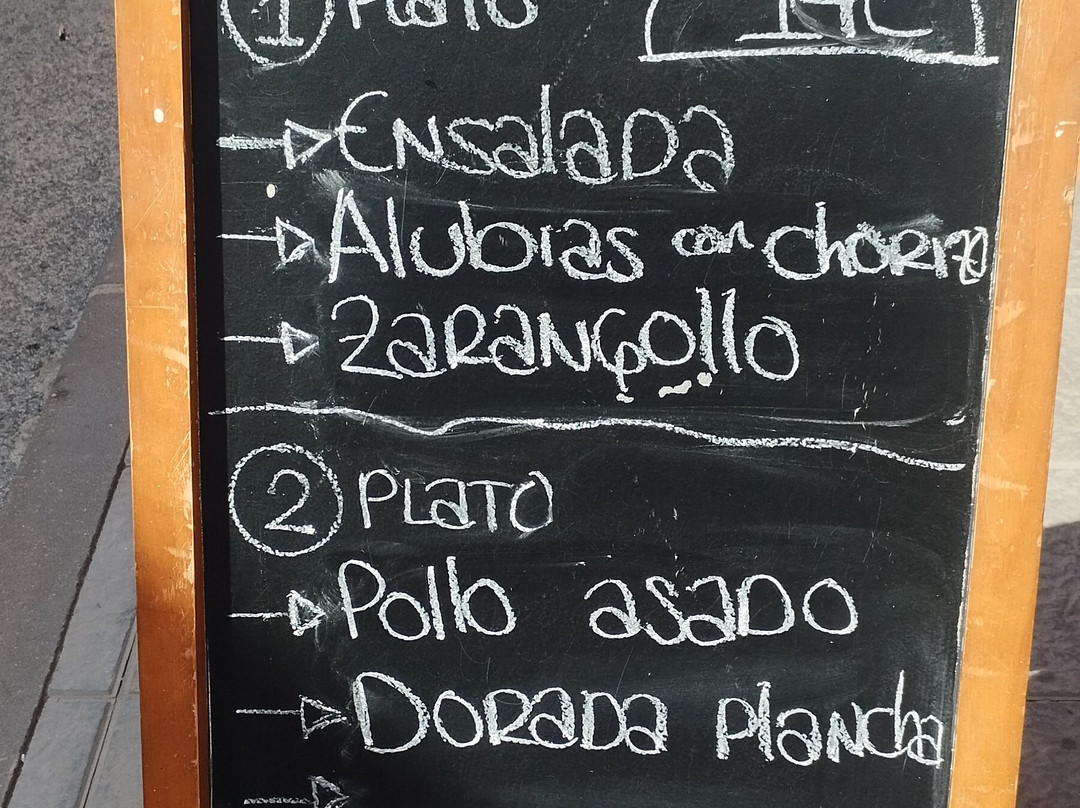 1 Plato
Ensalada
Alubias con chorizo
Zarangollo
2 PLATO
Pollo asado
Dorada plancha